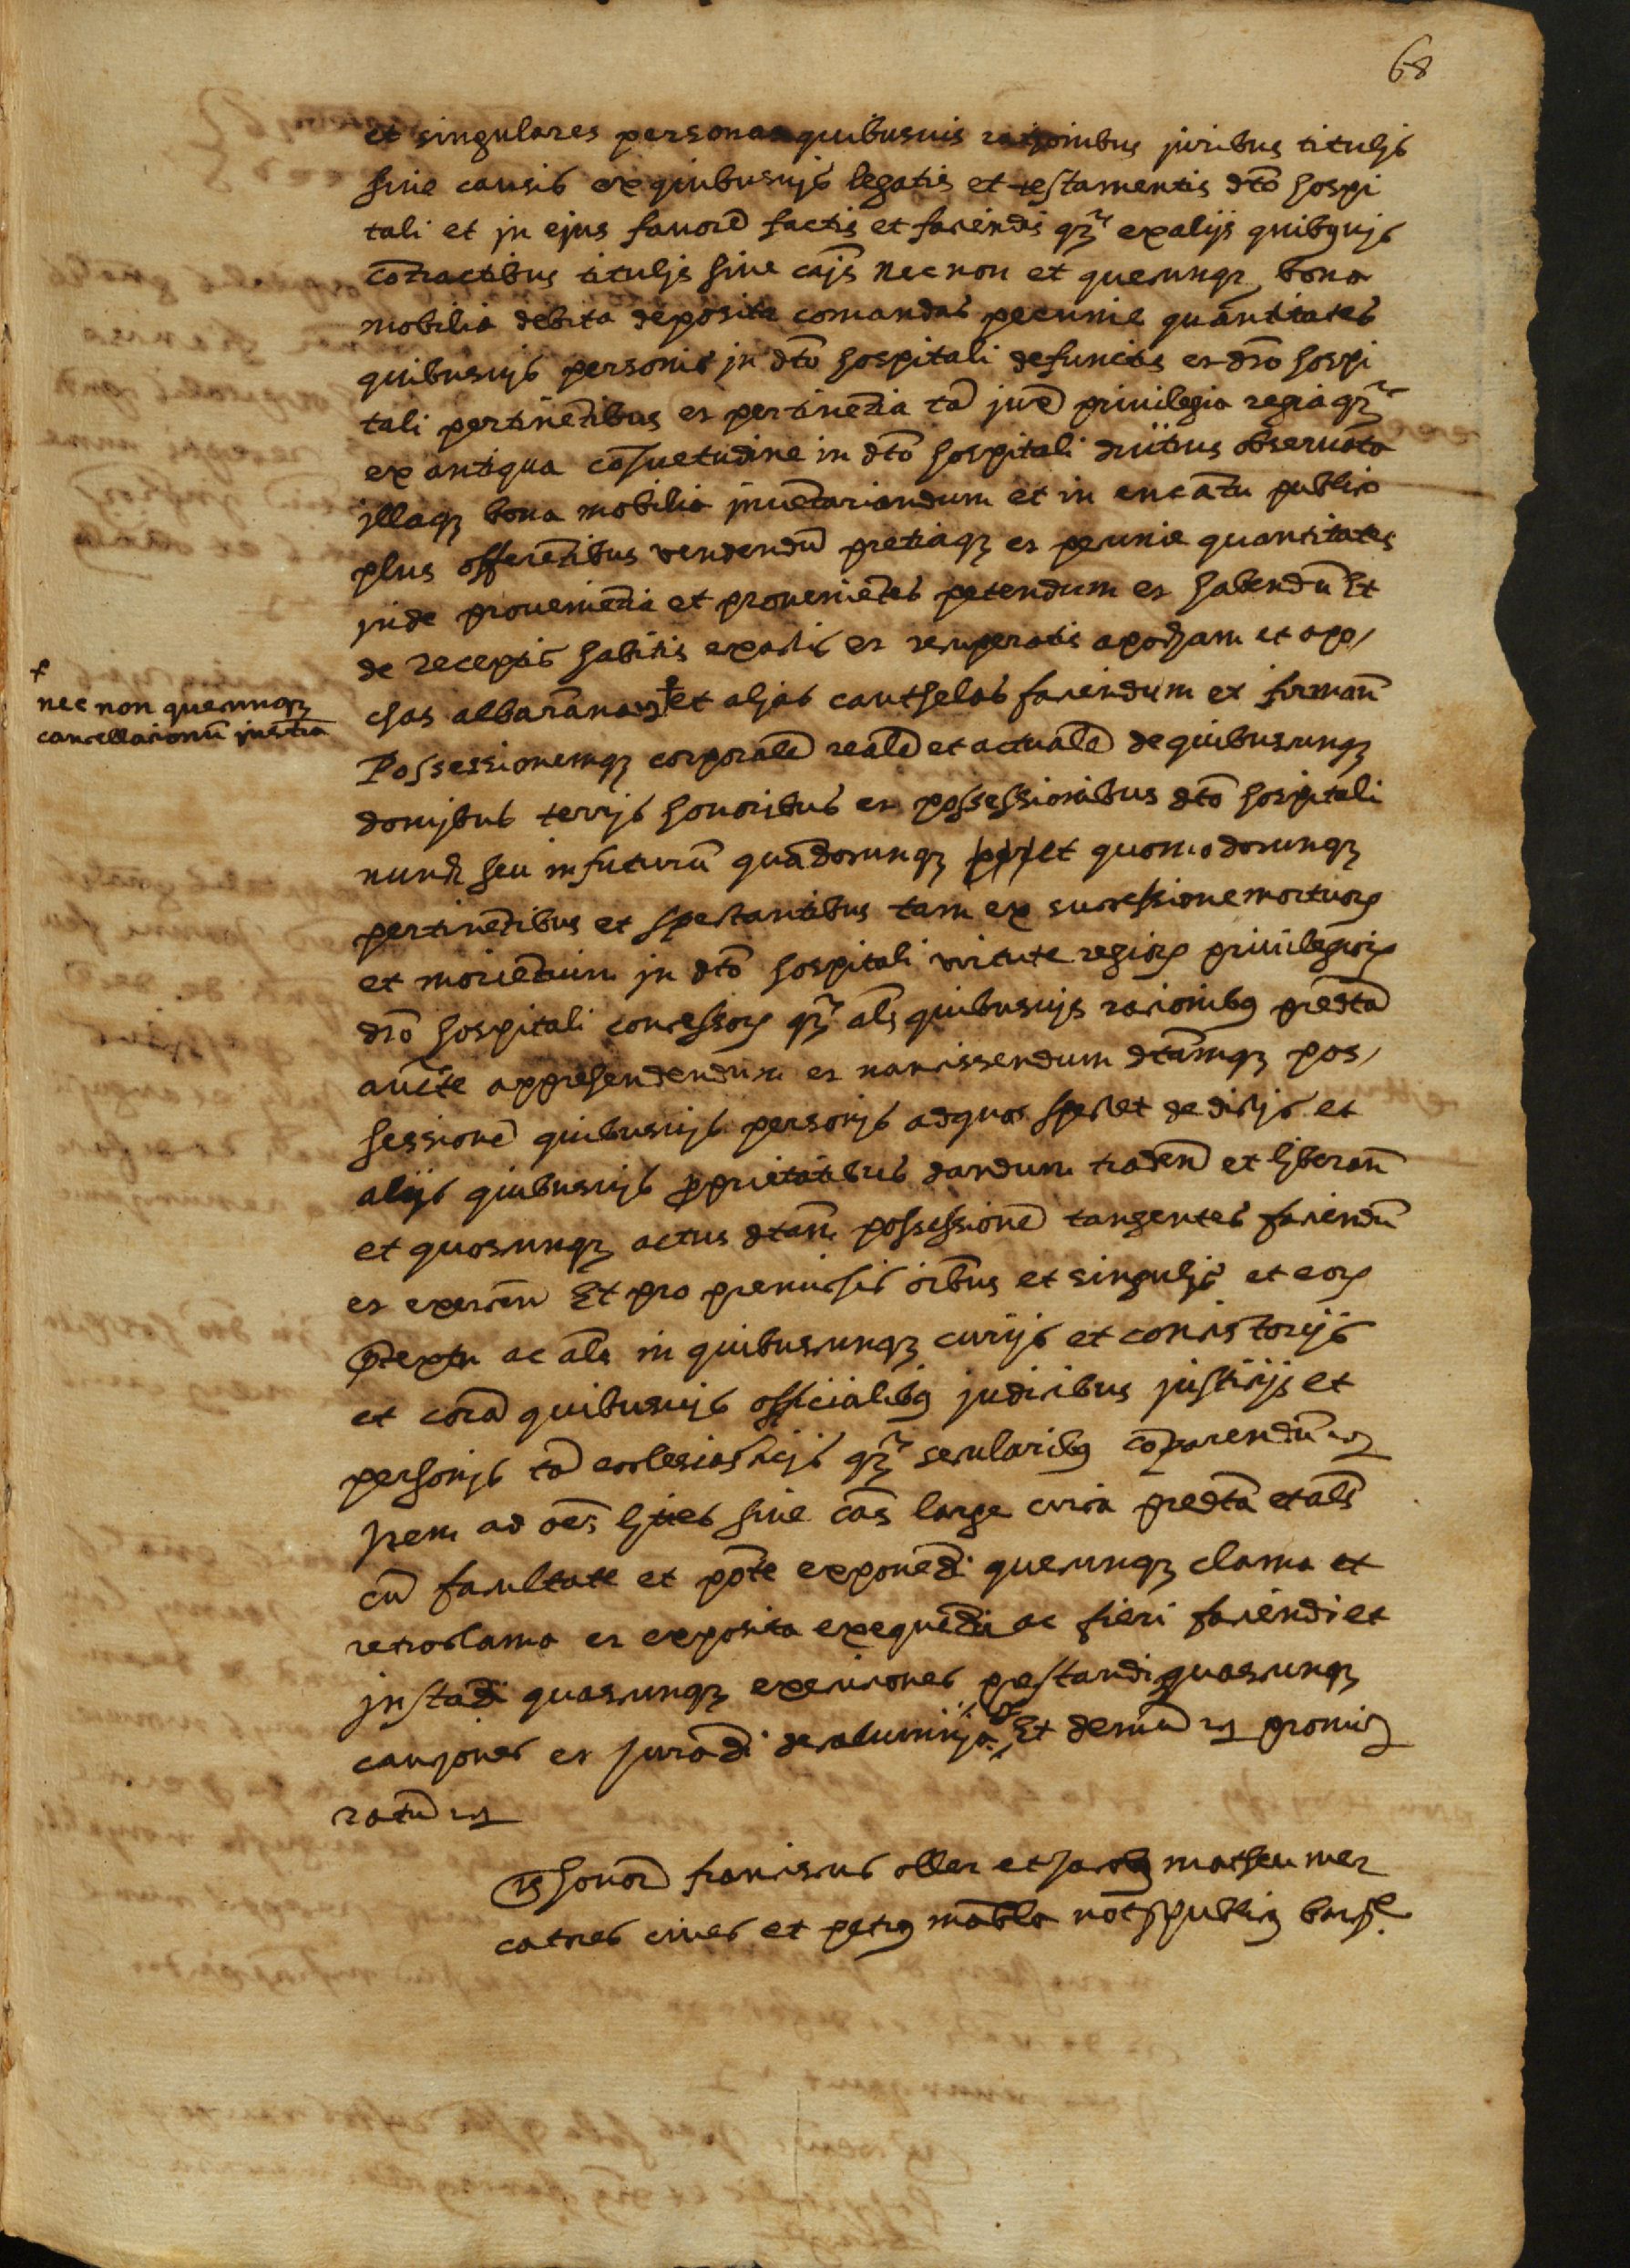 68
et singulares personas quibusuis racionibus juribus titulis
siue causis ex quibusuis legatis et testamentis dto hospi
tali et in ejus fauorē factis et faciendis qm̄ ex alijs quibusuis
cōtractibus titulis siue cais necnon et quecunqz bona
mobilia debita deposita comandas pecunie quantitates
quibusuis personis in dto hospitali defunctis et dto hospi
tali pertinētibus et pertinētia tā juxª priuilegia regia qm̄
ex antiqua cōsuetudine in dto hospitali diutius obseruata
illaqz bona mobilia inuētariandum et in encātu publico
plus offerētibus vendendū pretiaqz et pecunie quantitates
inde proueniētia et prouenietes petendum et habendū Et
de receptis habitis exactis et recuperatis apocham et apo,
chas albarana et alias cauthelas faciendum et firmand
+
nec non quecunqz
cancellacionū instrā
Possessionemqz corporalē realē et actualē de quibuscunqz
domibus terris honoribus et possessionibus dto hospitali
nunc seu in futurū quādocunqz et quomodocunqz
pertinētibus et spectantibus tam ex successione mortuorz
et morientium in dto hospitali virtute regiorz priuilegiorz
dto hospitali concessorz qm̄ als quibusuis racionibus predta
aucte apprehendendum et nanciscendum dtamqz pos,
sessionē quibusuis personis ad quos spectet de dictis et
alijs quibusuis proprietatibus dandum tradend et liberand
et quoscunqz actus dtam possessionē tangentes faciendū
et exercend Et pro premissis oibus et singulis et eorz
pretextu ac als in quibuscunqz curijs et consistorijs
et corā quibusuis officialibus judicibus justicijs et
personis tā ecclesiasticis qm̄ secularibus cōparendū etc
Item ad oēs lites siue cās large cum predta et als
cū facultate et pote exponēdi quecunqz clama et
retroclama et exposita exequēdi ac fieri faciendi et
instādi quascunqz execuciones prestandi quascunqz
cauciones et jurādi de calumnia Et demū etc promis
ratū etc
Ts honor franciscus oller et Jacobus matheu mer
catores ciues et petrus not publicus barch